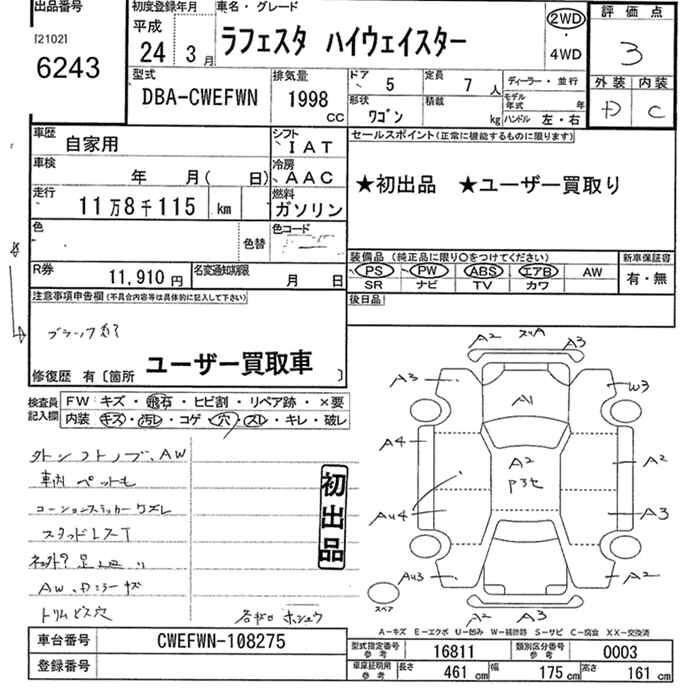 出品番号
[2102]
6243
初度登録年月
平成
24 3月
車名・グレード
ラフェスタ ハイウェイスター
2WD
・
4WD
評価点
3
外装 内装
D C
型式
DBA-CWEFWN
排気量
1998
CC
ドア
5
定員
7 人
ディーラー・並行
形状
ワゴン
積載
kg
モデル年式 年
ハンドル 左・右
車歴
自家用
シフト
IAT
車検
年 月( 日)
冷房
AAC
走行
11万8千115 km
燃料
ガソリン
色
色替
色コード
R券
11,910 円
名変通知期限
月 日
セールスポイント(正常に機能するものに限ります)
★初出品 ★ユーザー買取り
装備品 (純正品に限り○をつけてください)
新車保証書
PS PW ABS エアB AW
SR ナビ TV カワ
有・無
後日品
注意事項申告欄(不具合内容等は具体的に記入して下さい)
修復歴 有〔箇所 ユーザー買取車 〕
検査員
記入欄
FW キズ・飛石・ヒビ割・リペア跡・×要
内装 キズ・汚レ・コゲ・穴・スレ・キレ・破レ
外シフトノブ、AW
車内 ペット毛
コーションステッカー ウスレ
AW、Dミラーキズ
トリムビス穴
初出品
A2 A3
A3 W3
A1
A4 A2 A2
AU4 A3
AU3 A2
A2 A3
スペア
A-キズ E-エクボ U-凹み W-補修跡 S-サビ C-腐食 XX-交換済
車台番号 CWEFWN-108275
登録番号
型式指定番号
参考
16811
類別区分番号
参考
0003
車庫証明用
参考
長さ 461 cm 幅 175 cm 高さ 161 cm